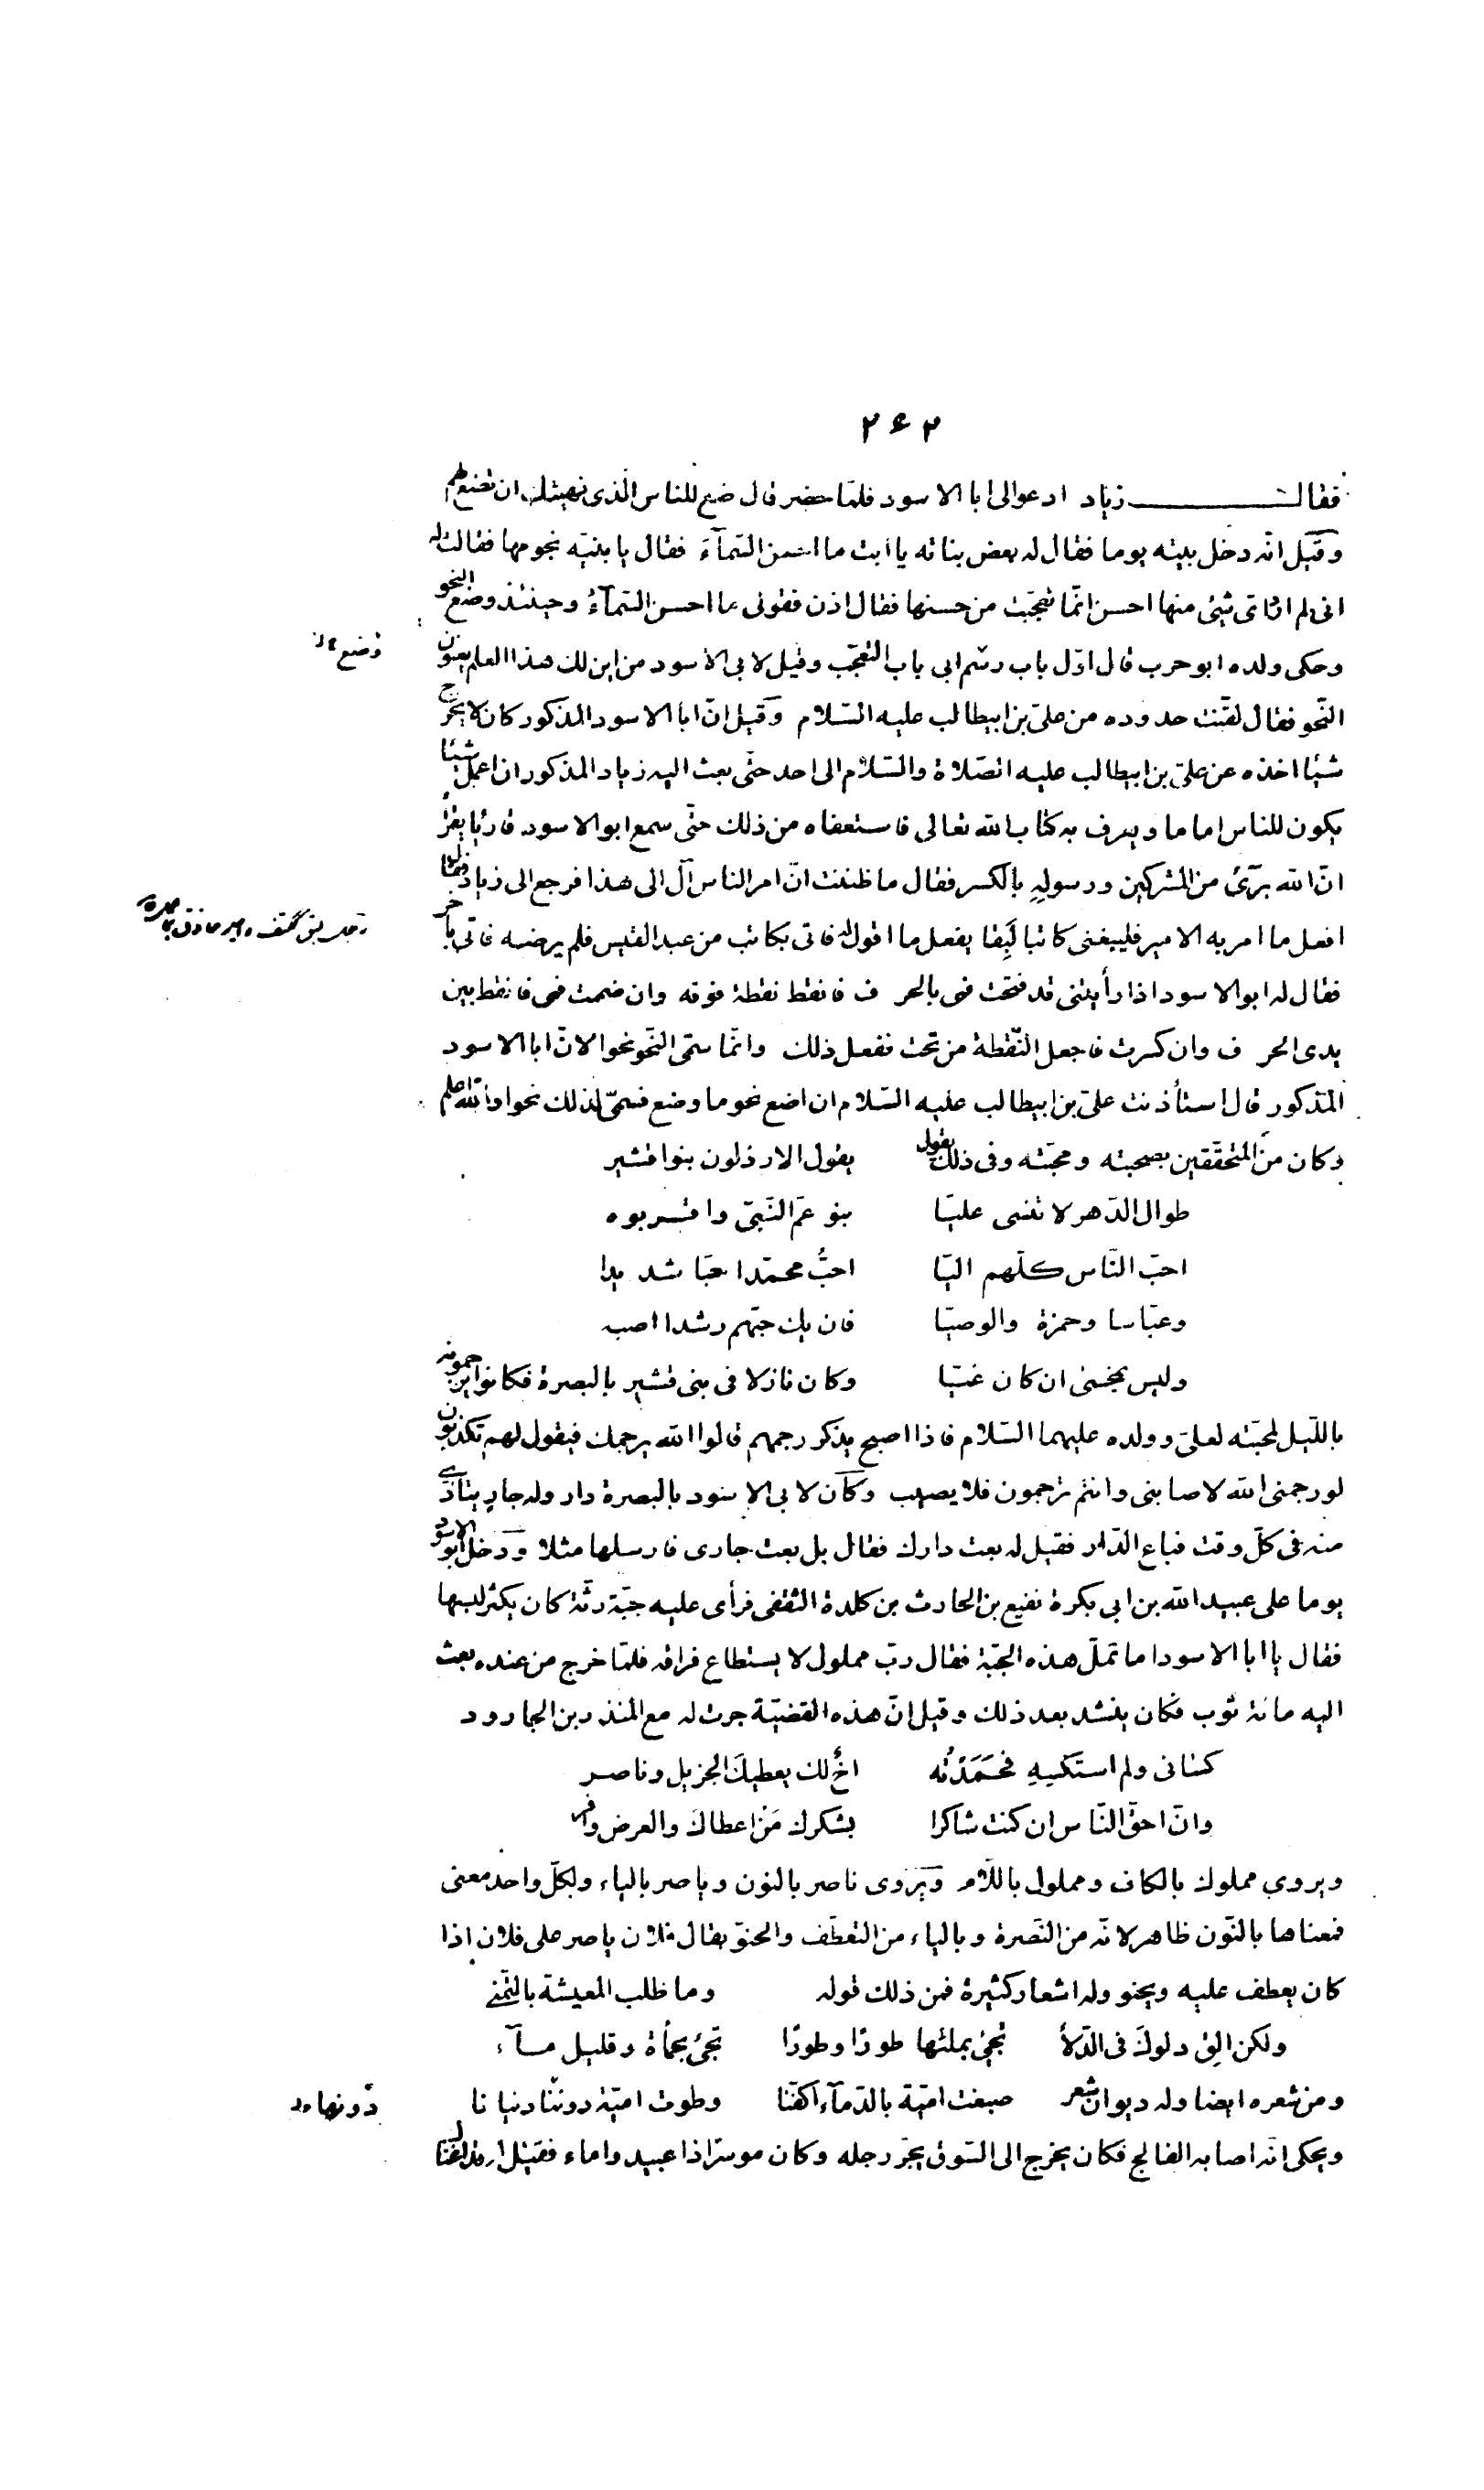 ٢۶٢
فقال زياد ادعوا لى ابا الاسود فلمّا حضر قال ضع للناس الذى نهيتك ان تضع لهم
وقيل انّه دخل بيته يوما فقال له بعض بناته يا ابت ما احسن السّمآءِ فقال يا بنيّه نجومها فقالت له
انى لم ارد اى شيئ منها احسن انّما تعجّبت من حسنها فقال اذن فقولى ما احسن السّمآءَ وحينئذ وضع النحو
وضع
وحكى ولده ابو حرب قال اوّل باب رسم ابى باب التعجّب وقيل لابى الاسود من اين لك هذا العلم يعنون
النّحو فقال لقّنت حدوده من علىّ بن ابيطالب عليه السّلام وقيل انّ ابا الاسود المذكور كان لا يخرج
شيئا اخذه عن علىّ بن ابيطالب عليه الصّلاة والسّلام الى احد حتّى بعث اليه زياد المذكور ان اعمل شيئا
يكون للناس اماما ويعرف به كتاب الله تعالى فاستعفاه من ذلك حتّى سمع ابو الاسود قارئا يقرأ
انّ الله برىٓء من المشركين ورسولِهِ بالكسر فقال ما ظننت انّ امر الناس آل الى هذا فرجع الى زياد فقال
افعل ما امر به الامير فليبغنى كاتبا لَبِقا يفعل ما اقول له فاتى بكاتب من عبد القيس فلم يرضه فاتى بآخر
فقال له ابو الاسود اذا رأيتنى قد فتحت فمى بالحرف فانقط نقطة فوقه وان ضممت فمى فانقط بين
يدى الحرف وان كسرت فاجعل النّقطة من تحت ففعل ذلك وانّما سمّى النّحو نحوا لانّ ابا الاسود
المذكور قال استأذنت علىّ بن ابيطالب عليه السّلام ان اضع نحو ما وضع فسمّى لذلك نحوا والله اعلم
وكان من المتحقّقين بصحبته ومحبّته وفى ذلك يقول يقول الارذلون بنوا قشير
طوال الدّهر لا تنسى عليّا بنو عمّ النّبىّ واقربوه
احبّ النّاس كلّهم اليّا احبُّ محمّدا حبّا شديدا
وعبّاسا وحمزة والوصيّا فان يك حبّهم رشدا اصبه
وليس بمخسئى ان كان غيّا وكان نازلا فى بنى قشير بالبصرة فكانوا يرجمونه
باللّيل لمحبّته لعلىّ وولده عليهما السّلام فاذا اصبح يذكر رجمهم قالوا الله يرجمك فيقول لهم تكذبون
لو رجمنى الله لاصابنى وانتم ترجمون فلا يصيب وكان لابى الاسود بالبصرة دار وله جارٍ يتأذّى
منه فى كلّ وقت فباع الدّار فقيل له بعت دارك فقال بل بعت جارى فارسلها مثلا ودخل ابو الاسود
يوما على عبيد الله بن ابى بكرة نفيع بن الحارث بن كلدة الثقفى فرأى عليه جبّة رثّة كان يكثر لبسها
فقال يا ابا الاسود اما تملّ هذه الجبّة فقال ربّ مملول لا يستطاع فراقه فلمّا خرج من عنده بعث
اليه مائة ثوب فكان ينشد بعد ذلك وقيل انّ هذه القضيّة جرت له مع المنذر بن الجارود
كسانى ولم استكسِهِ فحَمَدْتُه اخٌ لك يعطيكَ الجزيل وناصر
وانّ احقّ النّاس ان كنت شاكرا بشكرك مَنْ اعطاكَ والعرض وافر
ويروى مملوك بالكاف ومملول باللّام ويروى ناصر بالنون وياصر بالياء ولكلّ واحد معنى
فمعناها بالنّون ظاهر لانّه من النّصرة وبالياء من التعطّف والحنوّ يقال فلان ياصر على فلان اذا
كان يعطف عليه ويحنو وله اشعار كثيرة فمن ذلك قوله وما طلب المعيشة بالتّمنّى
ولكن الق دلوكَ فى الدّلأ تجئ بملئها طورًا وطورًا تجئ بحمأة وقليل مآء
ومن شعره ايضا وله ديوان شعر صبغت اميّة بالدّمآء اكفّنا وطوت اميّة دوننا دنيانا
دونها
ويحكى انّه اصابه الفالج فكان يخرج الى السّوق يجرّ رجله وكان موسرًا ذا عبيد واماء فقيل له قد اغناك